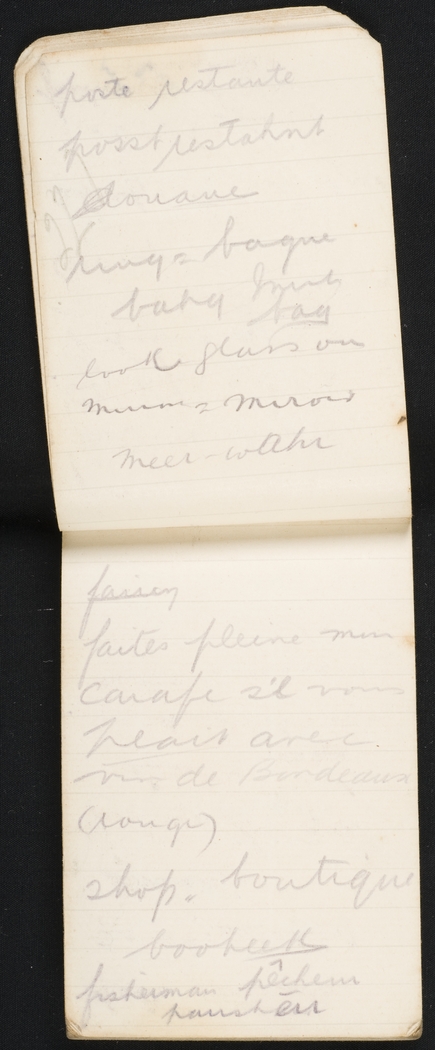 poste restante
posst restahnt
douane
ring = bague
bahg
bag
look glass or
mirror = miroir
meer-wAhr
faisey
faites pleine mon
carafe s'il vous
plait avec
vin de Bordeaux
(rouge)
shop. boutique
booteek
fisherman pêcheur